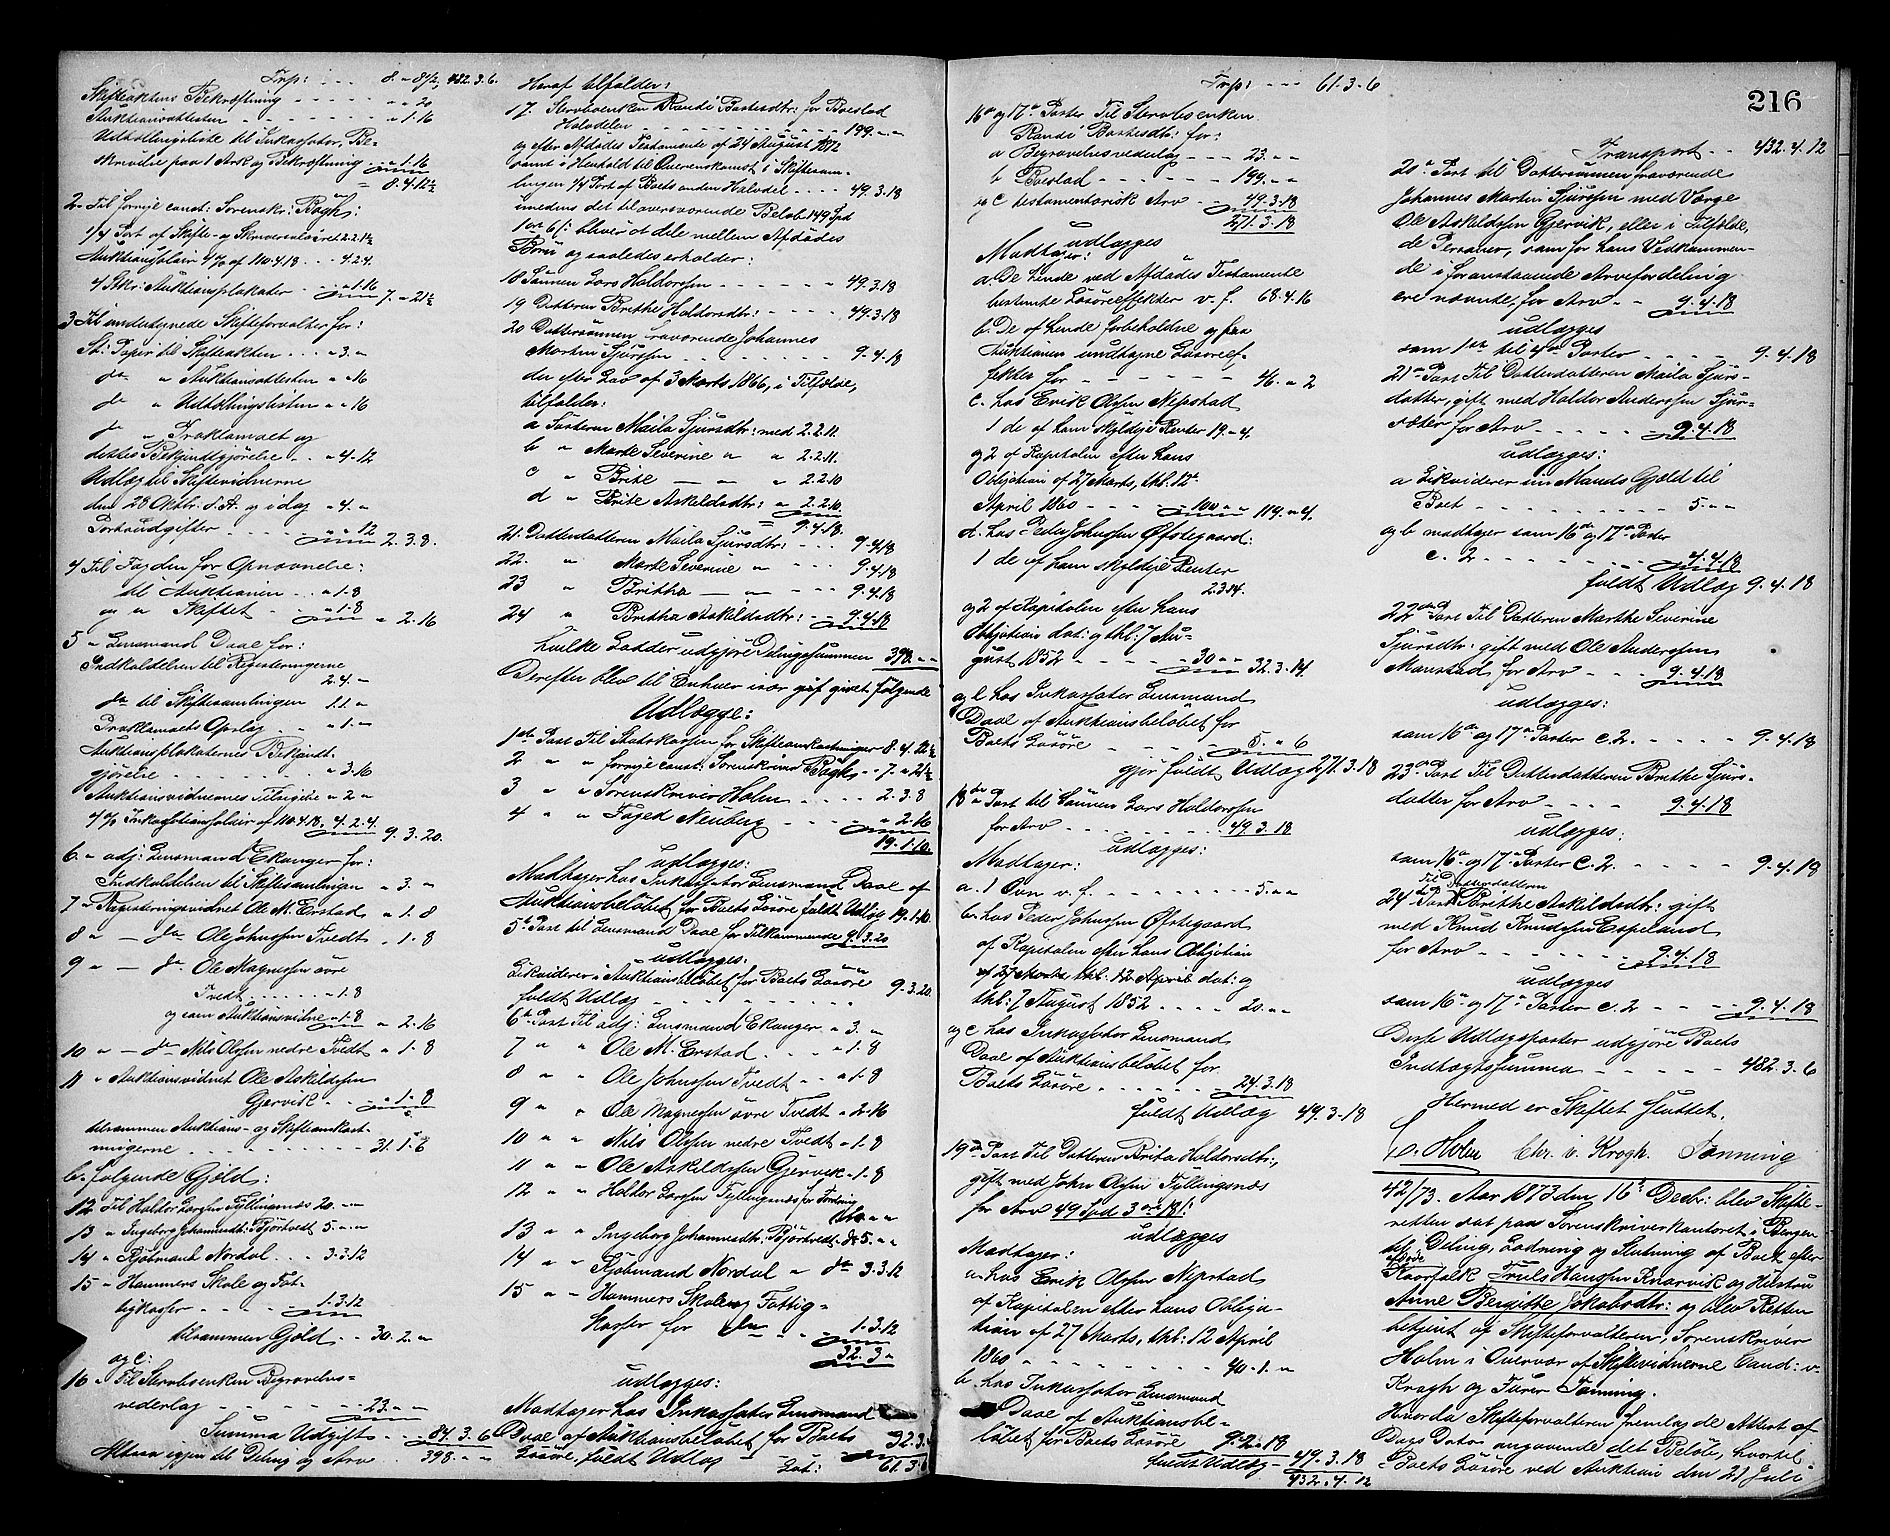 Trp: - - - 8. " 8½, 482.3.6.
Skifteaktens Bekræftning - - - - - " " 20
Auktionsattesten - - - - - " 1.16
Udtællingsliste til Inkassator, Be-
skrivelse paa 1 Ark og Bekræftning - " 1.16
8.4.12½
2 " Til forrige const: Sorenskr: Bagh:
1/4 Part af Skifte- og Skriversalairet 2.2.1½
Auktionssalair 4% af 110.4.18 . . . 4.2.4.
4 Stkr: Auktionsplakater - - - " 1.16 7. " 21½
3 Til undertegnede Skifteforvalter for:
St: Papir til Skifteakten . . . " 3. "
do " Auktionsattesten " " 16
do " Udtællingslisten " " 16
do " Proklamaet og
dettes Bekjendtgjørelse . . " 4.12
Udlæg til Skiftevidnerne
den 28 Oktbr: d. A. og idag " 4. "
Portoudgifter . . . . . " " 12 2.3.8.
4 Til Fogden for Opnævnelse:
til Auktionen . . " 1.8
og " Skiftet . . . " 1.8 " 2.16
5 " Lensmand Daae for:
Indkaldelsen til Registreringerne
2.4. "
do til Skiftesamlingen 1.1. "
Proklamaets Opslag - " 1. "
Auktionsplakaternes Bekjendt-
gjørelse . . . . . . . . " 3.16
Auktionsvidnernes Tilsigelse " 2 "
4% Inkassationssalair af 110.4.18, 4.2.4. 9.3.20.
6. " adj: Lensmand Ekanger for:
Indkaldelsen til Skiftesamlingen " 3. "
7 " Registreringsvidnet Ole M. Erstad " 1. 8
8 " — do Ole Johnssen Tvedt . " 1. 8
9 " — do Ole Magnessen øvre
Tvedt . . . . . . " 1.8
og som Auktionsvidne " 1.8 " 2.16
10 " — do Nils Olssen nedre Tvedt " 1. 8
11 " Auktionsvidnet Ole Askildssen
Gjervik . . . . " 1. 8
tilsammen Auktions- og Skifteomkost-
ningerne . . . . . . . . . . . 31.1.6
b. følgende Gjæld:
12 Til Haldor Larssen Fyllingsnæs 20. " "
13 " Ingeborg Johannesdtr: Bjørtvedt 5. " "
14 " Kjøbmand Nordal . . . 3.3.12
15 " Hammers Skole og Fat-
tigkasser . . . . . . . 1.3.12
tilsammen Gjæld . . 30.2. "
og c:
16 " Til Stervboenken Begravelses-
vederlag . . . . . . . 23. " "
Summa Udgift . . . 84.3.6
Altsaa igjen til Deling og Arv . . 398. " "
Heraf tilfalder:
17 Stervboenken Randi Bastesdtr: for Boeslod
Halvdelen . . . . . . . . . . . . 199. " "
og efter Afdødes Testamente af 24 August 1872
samt i Henhold til Overenskomst i Skiftesam-
lingen 1/4 Part af Boets anden Halvdel . . . . 49.3.18
imedens det tiloversværende Beløb 149 Spd
1 ort 6 ß bliver at dele mellem Afdødes
Børn og saaledes erholder:
18 Sønnen Lars Haldorssen - - - - - - 49.3.18
19 Datteren Brithe Haldorsdtr: - - - - 49.3.18
20 Dattersønnen fraværende Johannes
Martin Sjurssen . . . . . . . . 9.4.18
der efter Lov af 3 Marts 1866, i Tilfælde,
tilfalder:
a Søsteren Maila Sjursdtr: med 2.2.11.
b " Marte Severine " " 2.2.11.
c " Brite — " — " 2.2.10
d " Brite Askeldsdtr: " 2.2.10.
9.4.18.
21. Datterdatteren Maila Sjursdtr: - - - 9.4.18
22. " Marte Severine " - - - 9.4.18
23 " Britha — " — - - - 9.4.18
24 " Bretha Askildsdtr: - - 9.4.18
hvilke Lodder udgjøre Delingssummen 398. " "
Derefter blev til Enhver især gjest givet følgende
Udlægge:
1ste Post Til Statskassen for Skifteomkostninger 8.4.12½
2 " " forrige const: Sorenskriver Bagh - - 7. " 21½
3 " " Sorenskriver Holm . . . . . 2.3.8
4 " " Foged Neuberg . . . . . " 2.16
19.1.10.
udlægges:
Modtager hos Inkassator Lensmand Daae af
Auktionsbeløbet for Boets Løsøre fuldt Udlæg 19.1.10.
5te Post til Lensmand Daae for Tilkommende 9.3.20
udlægges:
Likviderer i Auktionsbeløbet for Boets Løsøre
fuldt Udlæg - - - - - - - - - 9.3.20.
6te Post Til adj: Lensmand Ekanger " 3. "
7 " " Ole M. Erstad . . . . " 1. 8
8 " " Ole Johnssen Tvedt . . " 1. 8
9 " " Ole Magnessen øvre Tvedt " 2.16
10 " " Nils Olssen nedre Tvedt " 1. 8
11 " " Ole Askildssen Gjervik " 1. 8
12 " " Haldor Larssen Fyllingsnæs for Fordring
20. " "
13 " " Ingeborg Johannesdtr: Bjørtvedt do 5. " "
14 " " Kjøbmand Nordal " do 3.3.12
15 " — Hammers Skole og Fattig-
kasser for do . . . 1.3.12
32.3 "
udlægges:
Modtager hos Inkassator Lensmand
Daae af Auktionsbeløbet for Boets
Løsøre, fuldt Udlæg — 32.3.
Lat: 61.3.6
216
Trp: - - - 61.3.6
16de og 17de Poster Til Stervboenken
Randi Bastesdtr: for:
a Begravelsesvederlag - - - 23. " "
b Boeslod - - - - - - 199. " "
og c testamentarisk Arv - - 49.3.18
271.3.18
udlægges
Modtager:
a. De hende ved Afdødes Testamente
bestemte Løsøreeffekter v. f. 68.4.16
b. De af hende forbeholdne og fra
Auktionen undtagne Løsøreef-
fekter for - - - - - - 46. " 2
c. hos Erik Olssen Nepstad
1 de af ham skyldige Renter 19. " 4.
og 2 af Kapitalen efter hans
Obligation af 27 Marts, thl: 12te
April 1860 - - - - - 100 " " 119. " 4.
d. hos Peder Johnssen Øfstegaard:
1 de af ham skyldige Renter
2.3.14.
og 2 af Kapitalen efter hans
Obligation dat: og thl: 7 Au-
gust 1852 - - - - 30 " " 32.3.14.
og e hos Inkassator Lensmand
Daae af Auktionsbeløbet for
Boets Løsøre - - - - - 5. " 6
gjør fuldt Udlæg 271.3.18
18de Post til Sønnen Lars Haldorssen
for Arv . . . . . . . . . 49.3.18
udlægges:
Modtager:
a. 1 Ovn v. f. - - - - - - - 5. " "
b. hos Peder Johnssen Øfstegaard
af Kapitalen efter hans Obligation
af 27 Marts thl: 12 April dat: og
thl: 7 August 1852 . . . . 20. " "
og c hos Inkassator Lensmand
Daae af Auktionsbeløbet for
Boets Løsøre . . . . . . . 24.3.18
fuldt Udlæg 49.3.18
19de Post Til Datteren Brita Haldorsdtr:,
gift med John Olssen Fyllingsnæs
for Arv 49 Spd 3 ort 18 ß
udlægges
Modtager:
a hos Erik Olssen Nepstad
af Kapitalen efter hans Obliga-
tion af 27 Marts, thl: 12 April
1860 - - - - - - - - - 40.1. "
b hos Inkassator Lensmand
Daae af Auktionsbe-
løbet for Boets Løsøre 9.2.18
fuldt Udlæg - 49.3.18
432.4.12
Transport . . 432.4.12
20de Post til Dattersønnen fraværende
Johannes Martin Sjurssen med Værge
Ole Askildssen Gjervik, eller i Tilfælde,
de Personer, som for hans Vedkommen-
de i foranstaaende Arvefordeling
ere nævnte, for Arv - - 9.4.18
udlægges
som 1ste til 4de Poster - - - - 9.4.18
21de Post Til Datterdatteren Maila Sjurs-
datter, gift med Haldor Anderssen Sjur-
sæter for Arv - - - - - 9.4.18
udlægges:
a Likviderer sin Mands Gjæld til
Boet - - - - - - - - - 5. " "
og b modtager som 16de og 17de Poster
c. 2 - - - - - - - 4.4.18
fuldt Udlæg 9.4.18
22de Post Til Datteren Marthe Severine
Sjursdtr: gift med Ole Anderssen
Manstad for Arv - - - 9.4.18
udlægges:
som 16de og 17de Poster c. 2. - - - - 9.4.18
23de Post Til Datterdatteren Brethe Sjurs-
datter for Arv - - - - 9.4.18
udlægges:
som 16de og 17de Poster c. 2. - - - - 9.4.18
Til Datterdatteren
24de Post Brithe Askildsdtr: gift
med Knud Knudssen Espeland
for Arv - - - - - - - 9.4.18
udlægges
som 16de og 17de Poster c. 2 - - - - 9.4.18
Disse Udlægsposter udgjøre Boets
Indtægtssumma - - - - - 482.3.6
Hermed er Skiftet sluttet.
Holm Chr. v. Krogh. Tønning
42/73. Aar 1873 den 16de Decbr: blev Skifte-
retten sat paa Sorenskriverkontoret i Bergen
til Deling, Lodning og Slutning af Boet efter
afdøde
Kaarfolk Truls Hanssen Knarvik og Hustru
Anne Bergitte Jakobsdtr: og blev Retten
betjent af Skifteforvalteren, Sorenskriver
Holm i Overvær af Skiftevidnerne Cand: v.
Krogh og Furer Tønning.
Hvorda Skifteforvalteren fremlagde Attest af
Dags Dato angaaende det Beløb, hvortil
Boets Løsøre ved Auktion den 21 Juli